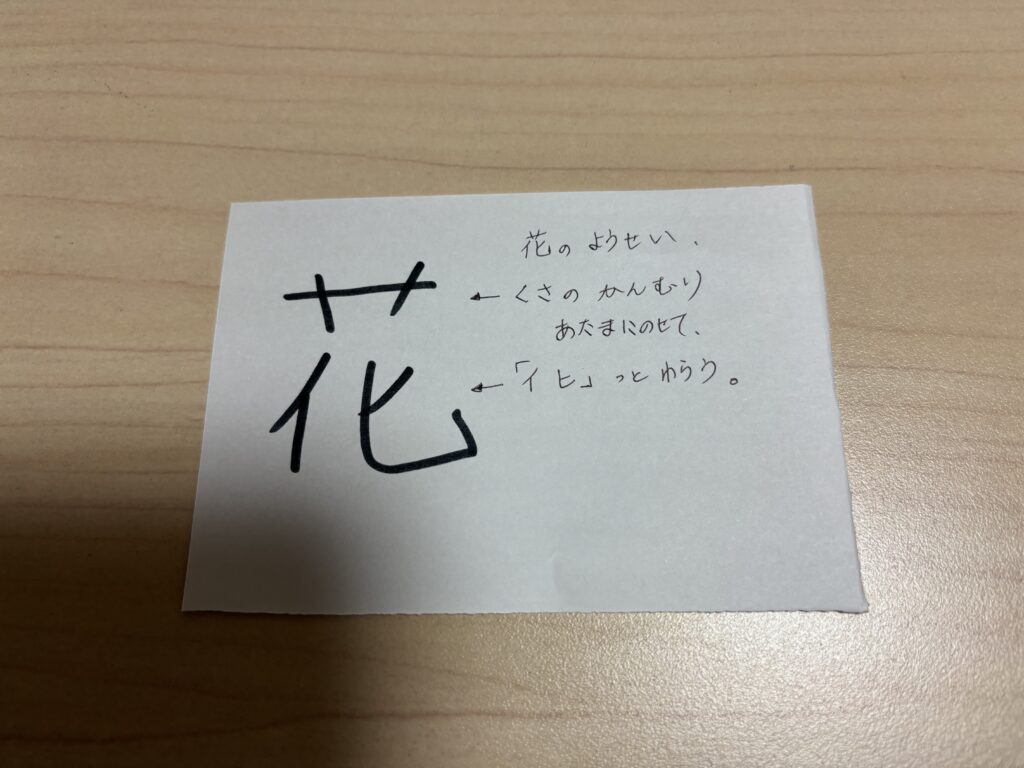 花
花のようせい、
←くさのかんむり
あたまにのせて、
←「イヒ」っとわらう。